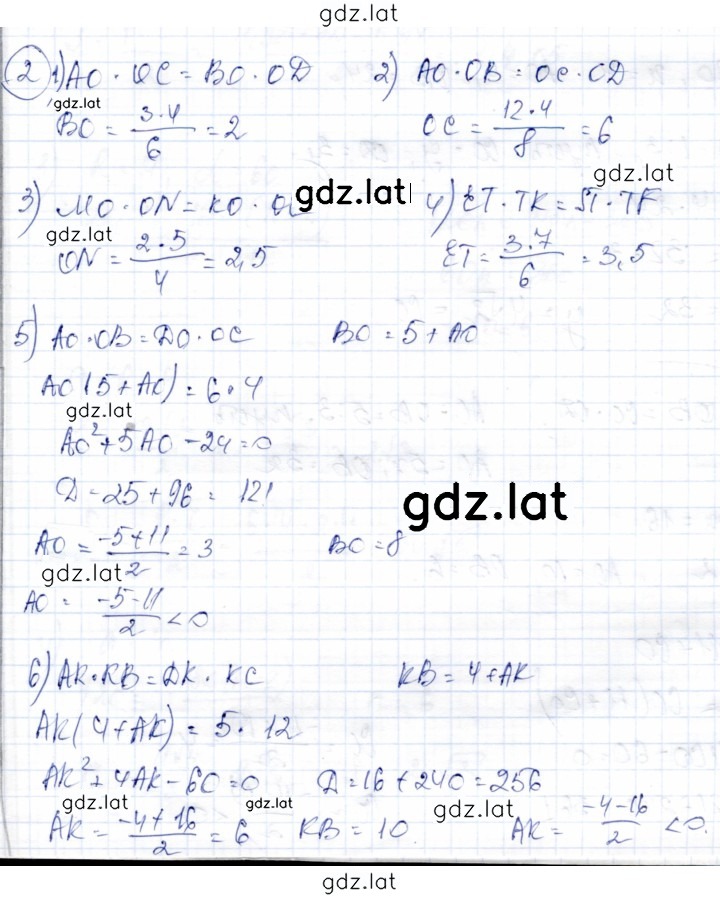 gdz.lat
2 1) AO · OC = BO · OD 2) AO · OB = OC · OD
gdz.lat
BO = 3·4/6 = 2 OC = 12·4/8 = 6
gdz.lat
3) MO · ON = KO · OL gdz.lat 4) ET · TK = ST · TF
gdz.lat
ON = 2·5/4 = 2,5 ET = 3·7/6 = 3,5
5) AO · OB = DO · OC BO = 5 + AO
AO (5 + AO) = 6 · 4
gdz.lat
AO² + 5AO - 24 = 0
D = 25 + 96 = 121
gdz.lat
AO = -5+11/2 = 3 BO = 8
gdz.lat
AO = -5-11/2 < 0
6) AK · KB = DK · KC KB = 4 + AK
AK (4 + AK) = 5 · 12
AK² + 4AK - 60 = 0 D = 16 + 240 = 256
gdz.lat gdz.lat gdz.lat
AK = -4+16/2 = 6 KB = 10. AK = -4-16/2 < 0.
gdz.lat